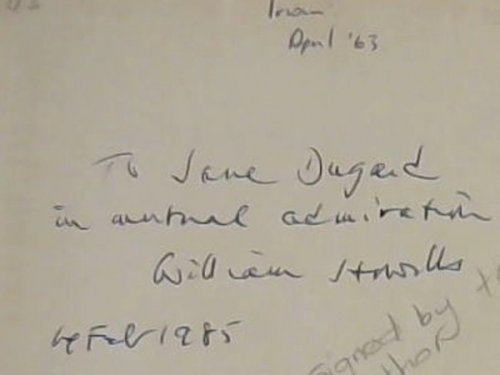 April '63
To Jane Dugard
in mutual admiration
William Howells
Feb 1985
signed by